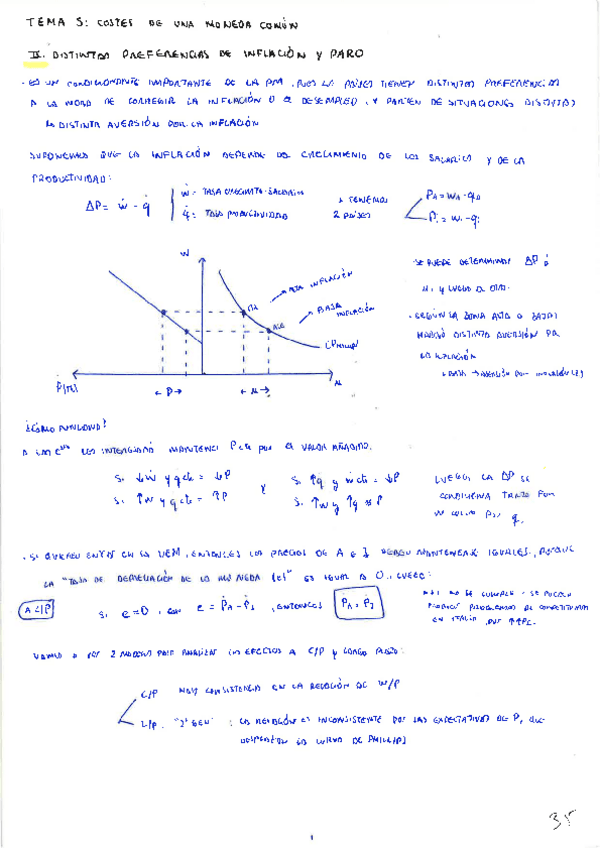 TEMA 5: COSTES DE UNA MONEDA COMÚN
II. DISTINTAS PREFERENCIAS DE INFLACIÓN Y PARO
· ES UN CONDICIONANTE IMPORTANTE DE LA PM, PUES LOS PAÍSES TIENEN DISTINTAS PREFERENCIAS
A LA HORA DE CORREGIR LA INFLACIÓN O EL DESEMPLEO, Y PARTEN DE SITUACIONES DISTINTAS
DISTINTA AVERSIÓN POR LA INFLACIÓN
SUPONEMOS QUE LA INFLACIÓN DEPENDE DEL CRECIMIENTO DE LOS SALARIOS Y DE LA
PRODUCTIVIDAD:
ΔP = ẇ - q̇
ẇ = TASA CRECIMTO. SALARIOS
q̇ = TASA PRODUCTIVIDAD
TENEMOS
2 PAÍSES
PA = WA - qA
Pi = Wi - qi
W
ALTA INFLACIÓN
BAJA INFLACIÓN
ITA
ALE
C. PHILLIPS
P
μ
SE PUEDE DETERMINAR ΔP
· SEGÚN LA ZONA ALTA O BAJA
HABRÁ DISTINTA AVERSIÓN POR
LA INFLACIÓN
¿CÓMO FUNCIONA?
A LAS LES INTERESARÁ MANTENER P cte POR EL VALOR AÑADIDO.
Si ↓w y q cte = ↓P
Si ↑w y q cte = ↑P
Y
Si ↑q y w cte = ↓P
Si ↑w y ↑q = P
LUEGO, LA ΔP SE
CONDICIONA TANTO POR
W COMO POR q.
· SI QUEREMOS ENTRAR EN LA UEM, ENTONCES LOS PRECIOS DE A E I DEBEN MANTENERSE IGUALES, PORQUE
LA "TASA DE DEPRECIACIÓN DE LA MONEDA (e)" ES IGUAL A 0, LUEGO:
A C/P
Si e = 0, e = ṖA - ṖI, ENTONCES
ṖA = ṖI
NO SE CUMPLE
PROBLEMAS DE COMPETITIVIDAD
EN ITALIA
VAMOS A VER 2 MODELOS PARA ANALIZAR LOS EFECTOS A C/P Y LARGO PLAZO:
C/P HAY CONSISTENCIA EN LA RELACIÓN DE W/P
L/P. : LA RELACIÓN ES INCONSISTENTE POR LAS EXPECTATIVAS DE P, QUE
LA CURVA DE PHILLIPS
35
1